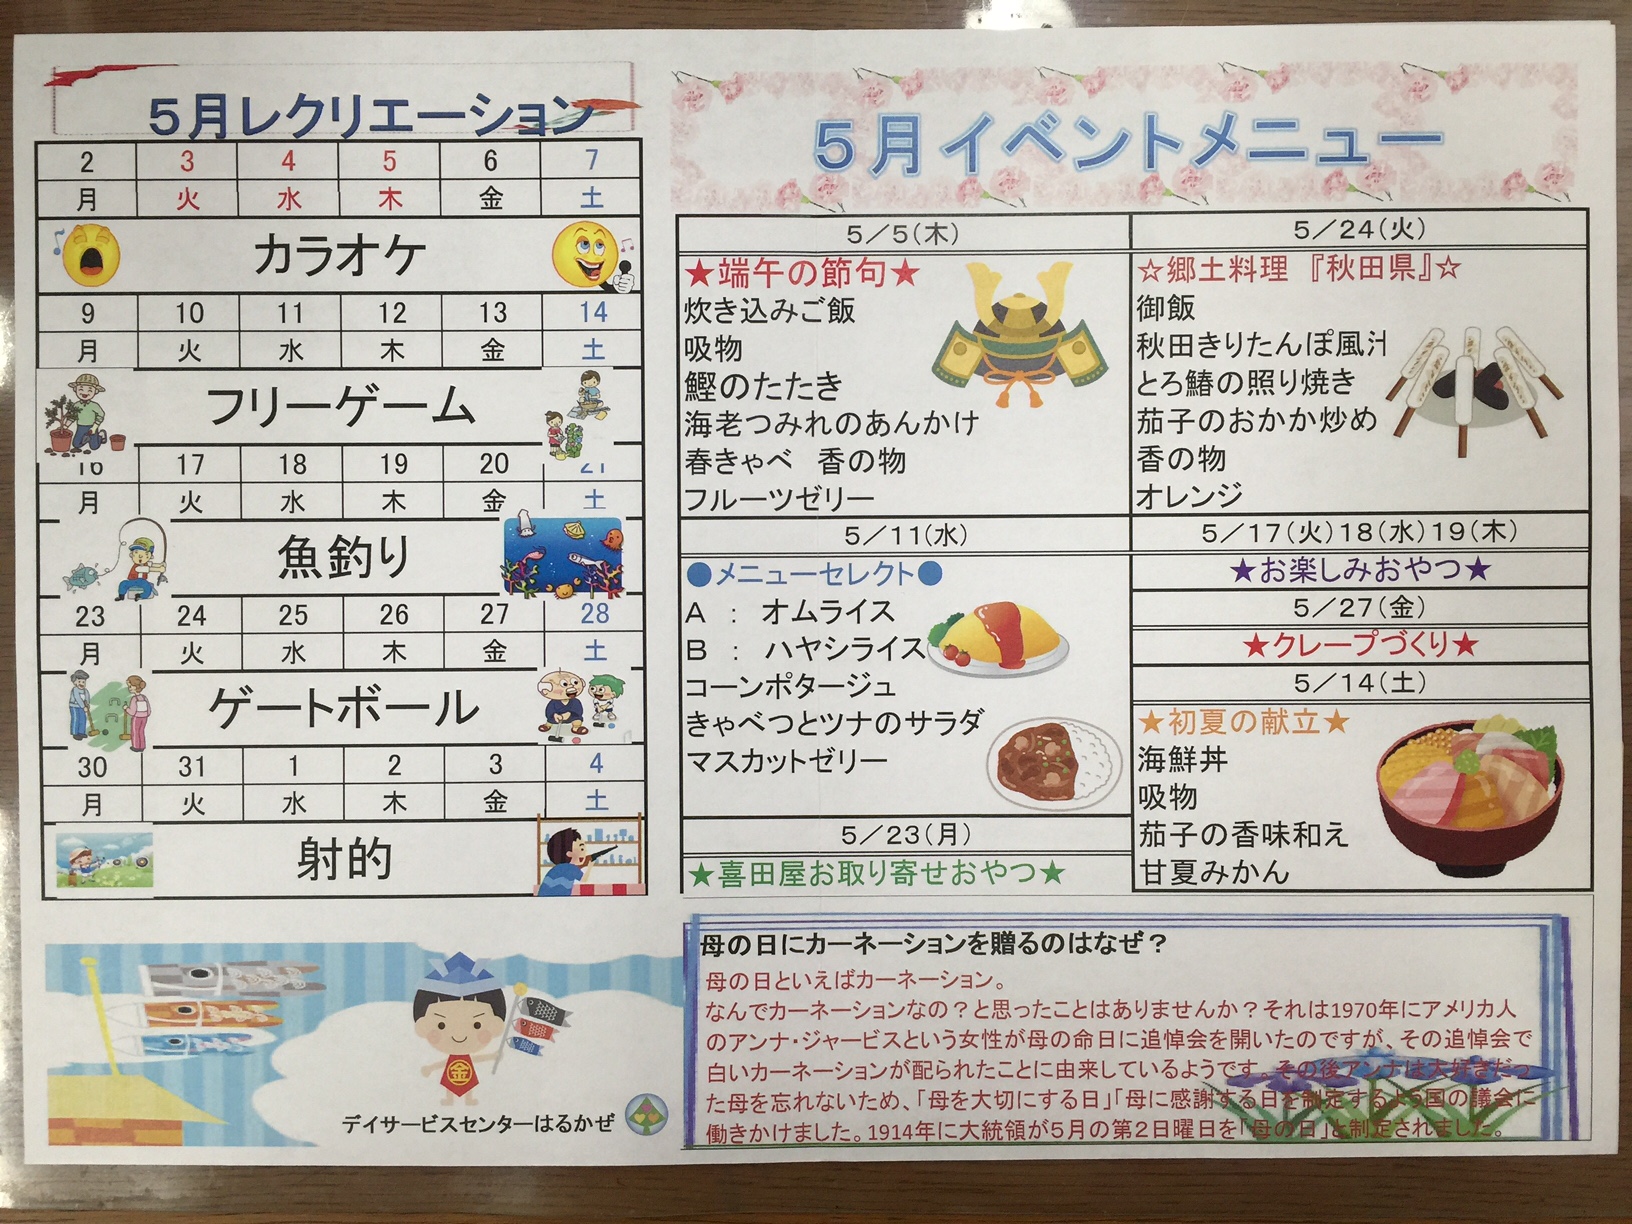 5月レクリエーション
2 3 4 5 6 7
月 火 水 木 金 土
カラオケ
9 10 11 12 13 14
月 火 水 木 金 土
フリーゲーム
16 17 18 19 20 21
月 火 水 木 金 土
魚釣り
23 24 25 26 27 28
月 火 水 木 金 土
ゲートボール
30 31 1 2 3 4
月 火 水 木 金 土
射的
金
デイサービスセンターはるかぜ
5月イベントメニュー
5/5(木)
★端午の節句★
炊き込みご飯
吸物
鰹のたたき
海老つみれのあんかけ
春きゃべ 香の物
フルーツゼリー
5/11(水)
●メニューセレクト●
A : オムライス
B : ハヤシライス
コーンポタージュ
きゃべつとツナのサラダ
マスカットゼリー
5/23(月)
★喜田屋お取り寄せおやつ★
5/24(火)
☆郷土料理 『秋田県』☆
御飯
秋田きりたんぽ風汁
とろ鰆の照り焼き
茄子のおかか炒め
香の物
オレンジ
5/17(火)18(水)19(木)
★お楽しみおやつ★
5/27(金)
★クレープづくり★
5/14(土)
★初夏の献立★
海鮮丼
吸物
茄子の香味和え
甘夏みかん
母の日にカーネーションを贈るのはなぜ？
母の日といえばカーネーション。
なんでカーネーションなの？と思ったことはありませんか？それは1970年にアメリカ人
のアンナ・ジャービスという女性が母の命日に追悼会を開いたのですが、その追悼会で
白いカーネーションが配られたことに由来しているようです。その後アンナは大好きだっ
た母を忘れないため、「母を大切にする日」「母に感謝する日を制定するよう国の議会に
働きかけました。1914年に大統領が5月の第2日曜日を「母の日」と制定されました。